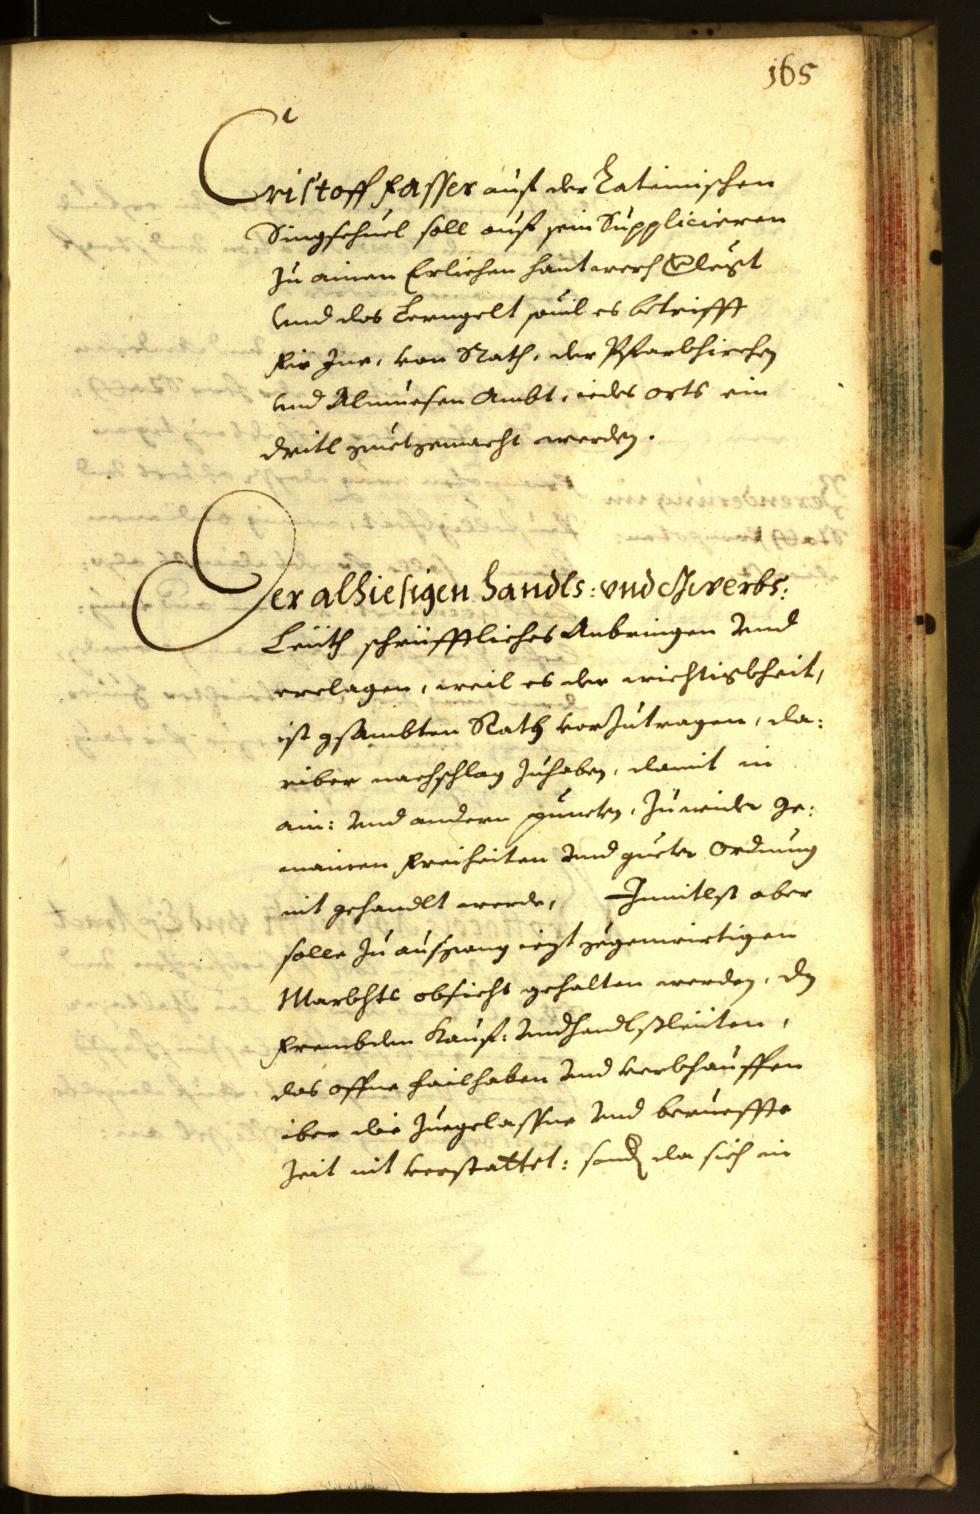 165
Cristoff Passer auß der Lateinischen
Singschuel soll auf sein Supplicieren
Zu ainem Erlichen hantwerch
vnd das Lerngelt souil es betrifft
fir Ine, von Rath, der Pfarkhirchen
vnd Almuesen Ambt, iedes orts ein
dritl guetgemacht werden.
Der alhiesigen handls: vnd Gwerbs:
Leuth schrüfftliches Anbringen vnd
erclagen, weil es der wichtigkheit,
ist gsambten Rath vorzutragen, da:
riber nachschlag zuhaben, damit in
ain: vnd andern puncten, Zuwider ge:
mainen Freiheiten vnd gueter Ordnung
nit gehandlt werde, Inmitlst aber
solle Zu außgang iezt gegenwirtigen
Markhts obsicht gehalten werden, dz
frembden Kauf: vnd handlßleüten,
das offne failhaben vnd verkhauffen
iber die Zuegelassne vnd berueffte
Zeit nit verstattet: sonder da sich in